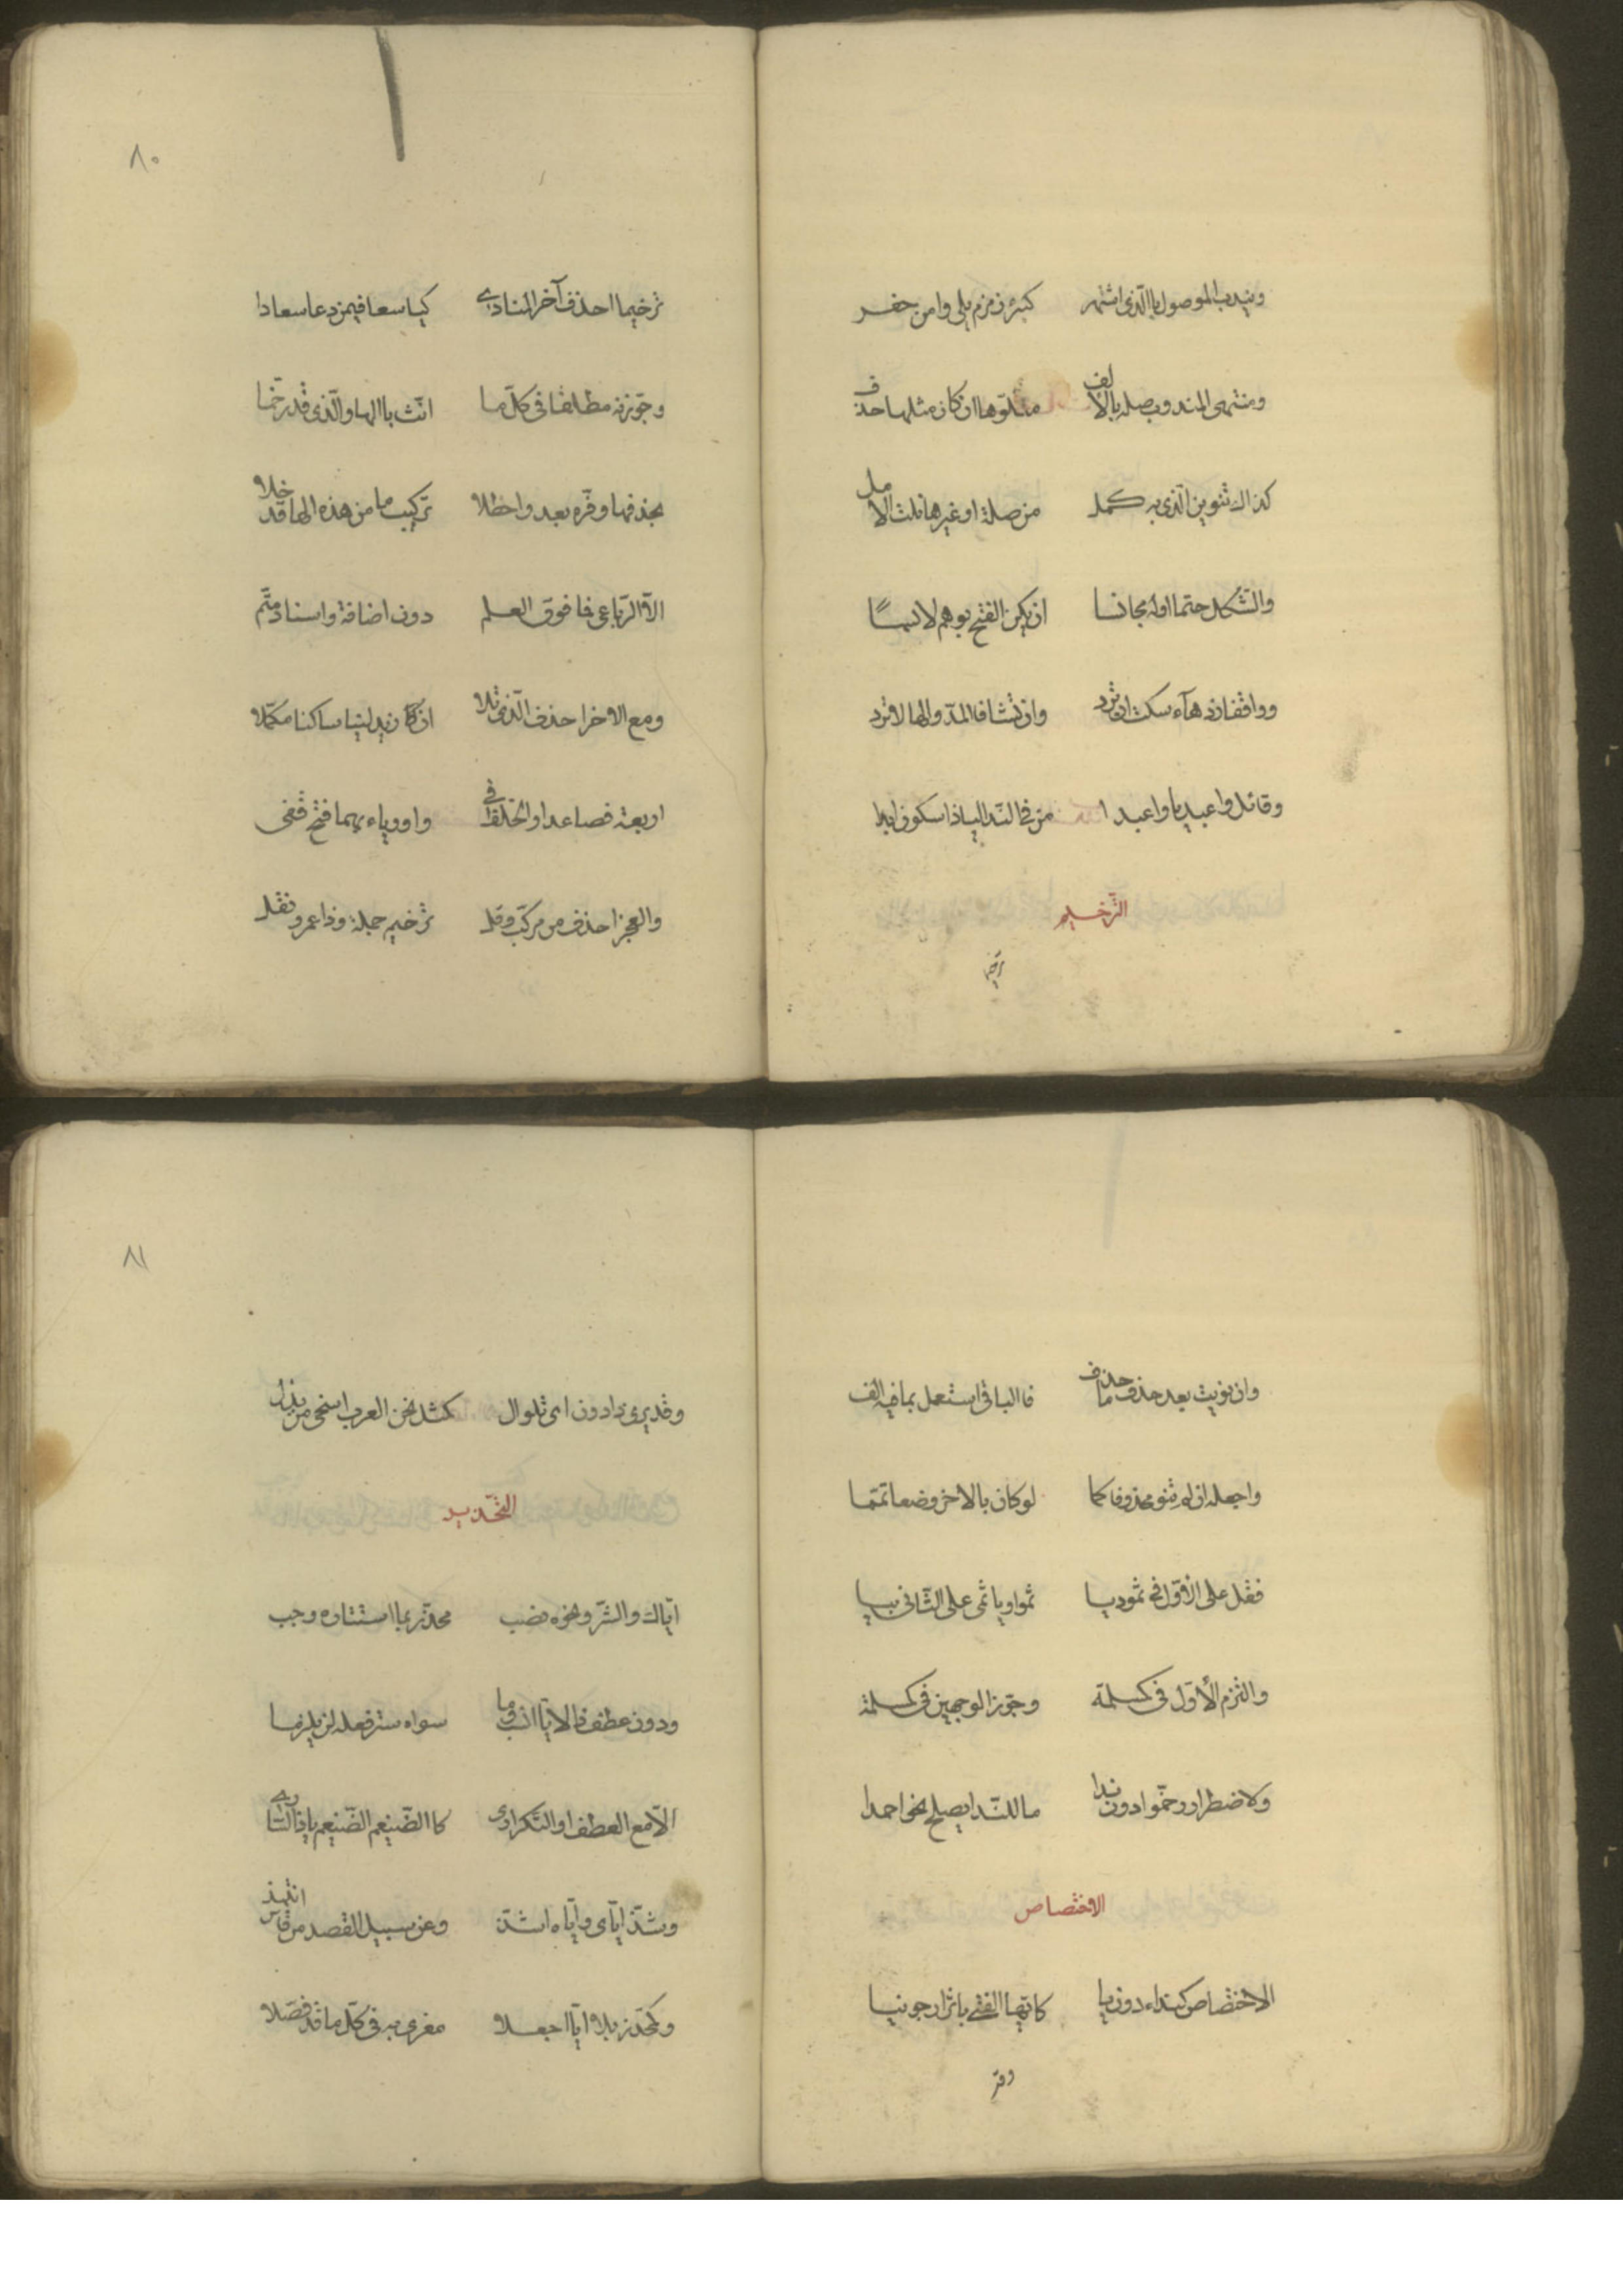 ويندب الموصول باالذي اشتهر كبئر زمزم يلي وامن حفر
ومنتهى المندوب صله بالالف متلوها ان كان مثلها حذف
كذاك تنوين الذي به كمل من صلة او غيرها نلت الامل
والشكل حتما اوله مجانسا ان يكن الفتح بوهم لابسا
وواقفا زد هآء سكت ان ترد وان تشا فالمد والها لا تزد
وقائل وا عبديا وا عبدا من في الندا اليا ذا سكون ابدا
الترخيم
ترخيما
٨٠
ترخيما احذف آخر المنادى كيا سعا فيمن دعا سعادا
وجوزنه مطلقا في كل ما انث باالها والذي قد رخما
بحذفها وفره بعد واحظلا تركيب ما من هذه الها قد خلا
الا الرباعي فما فوق العلم دون اضافة واسناد متم
ومع الاخر احذف الذي تلا ان كان زيد لينا ساكنا مكملا
اربعة فصاعدا والخلف في واو وياء بهما فتح قفي
والعجز احذف من مركب وقل ترخيم جملة وذا عمرو نقل
وان نويت بعد حذف ما حذف فاالباقي استعمل بما فيه الف
واجعله ان لم تنو محذوفا كما لو كان بالاخر وضعا تمما
فقل على الاول في ثمود يا ثمو ويا ثمي على الثاني بيا
والتزم الأول في كمسلمة وجوز الوجهين في كمسلمة
ولاضطرار رخموا دون ندا ما للندا يصلح نحو احمدا
الاختصاص
الاختصاص كنداء دون يا كايها الفتى باثر ارجونيا
وقد
٨١
وقد يرى ذا دون اي تلو ال كمثل نحن العرب اسخى من بذل
التحذير
اياك والشر ونحوه نصب محذر بما استتاره وجب
ودون عطف ذا لايا انسب وما سواه ستر فعله لن يلزما
الا مع العطف او التكرار كا الضيغم الضيغم يا ذا الساري
وشذ اياي واياه اشذ وعن سبيل القصد من قاس انتبذ
وكمحذر بلا ايا اجعلا مغرى به في كل ما قد فصلا